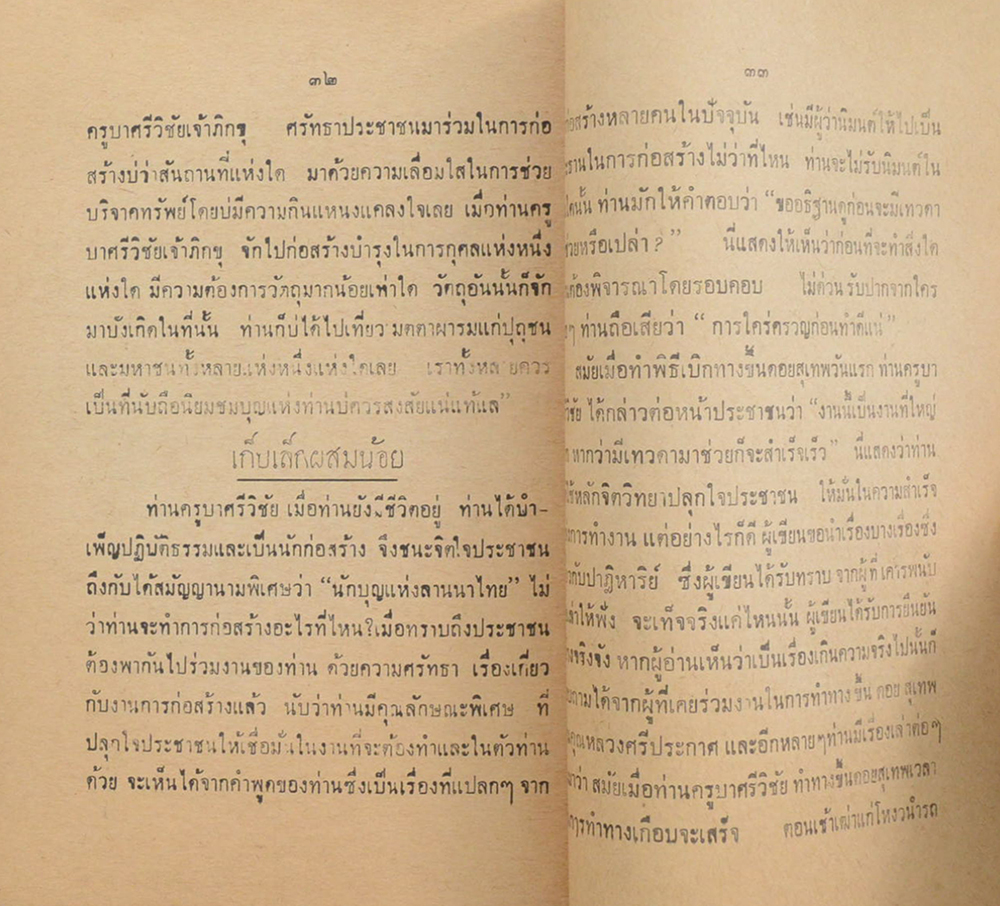 ๓๒
ครูบาศรีวิชัยเจ้าภิกขุ ศรัทธาประชาชนมาร่วมในการก่อ
สร้างบ่ว่าสันถานที่แห่งใด มาด้วยความเลื่อมใสในการช่วย
บริจาคทรัพย์โดยบ่มีความกินแหนงแคลงใจเลย เมื่อท่านครู
บาศรีวิชัยเจ้าภิกขุ จักไปก่อสร้างบำรุงในการกุศลแห่งหนึ่ง
แห่งใด มีความต้องการวัตถุมากน้อยเท่าใด วัตถุอันนั้นก็จัก
มาบังเกิดในที่นั้น ท่านก็บ่ได้ไปเที่ยว แก่ปุถุชน
และมหาชนทั้งหลายแห่งหนึ่งแห่งใดเลย เราทั้งหลายควร
เป็นที่นับถือนิยมชมบุญแห่งท่านบ่ควรสงสัยแน่แท้แล"
เก็บเล็กผสมน้อย
ท่านครูบาศรีวิชัย เมื่อท่านยังมีชีวิตอยู่ ท่านได้บำ-
เพ็ญปฏิบัติธรรมและเป็นนักก่อสร้าง จึงชนะจิตใจประชาชน
ถึงกับได้สมัญญานามพิเศษว่า "นักบุญแห่งลานนาไทย" ไม่
ว่าท่านจะทำการก่อสร้างอะไรที่ไหน? เมื่อทราบถึงประชาชน
ต้องพากันไปร่วมงานของท่าน ด้วยความศรัทธา เรื่องเกี่ยว
กับงานการก่อสร้างแล้ว นับว่าท่านมีคุณลักษณะพิเศษ ที่
ปลุกใจประชาชนให้เชื่อมั่นในงานที่จะต้องทำและในตัวท่าน
ด้วย จะเห็นได้จากคำพูดของท่านซึ่งเป็นเรื่องที่แปลกๆ จาก
๓๓
ก่อสร้างหลายคนในปัจจุบัน เช่นมีผู้ว่านิมนต์ให้ไปเป็น
ธานในการก่อสร้างไม่ว่าที่ไหน ท่านจะไม่รับนิมนต์ใน
ใดนั้น ท่านมักให้คำตอบว่า "ขออธิฐานดูก่อนจะมีเทวดา
ช่วยหรือเปล่า ?" นี่แสดงให้เห็นว่าก่อนที่จะทำสิ่งใด
ต้องพิจารณาโดยรอบคอบ ไม่ด่วนรับปากจากใคร
ๆ ท่านถือเสียว่า " การใคร่ครวญก่อนทำดีแน่"
สมัยเมื่อทำพิธีเบิกทางขึ้นดอยสุเทพวันแรก ท่านครูบา
วิชัย ได้กล่าวต่อหน้าประชาชนว่า "งานนี้เป็นงานที่ใหญ่
หากว่ามีเทวดามาช่วยก็จะสำเร็จเร็ว" นี่แสดงว่าท่าน
ใช้หลักจิตวิทยาปลุกใจประชาชน ให้มั่นในความสำเร็จ
การทำงาน แต่อย่างไรก็ดี ผู้เขียนขอนำเรื่องบางเรื่องซึ่ง
กับปาฏิหาริย์ ซึ่งผู้เขียนได้รับทราบ จากผู้ที่เคารพนับ
ให้ฟัง จะเท็จจริงแค่ไหนนั้น ผู้เขียนได้รับการยืนยัน
จริงจัง หากผู้อ่านเห็นว่าเป็นเรื่องเกินความจริงไปนั้นก็
ถามได้จากผู้ที่เคยร่วมงานในการทำทางขึ้น ดอย สุเทพ
คุณหลวงศรีประกาศ และอีกหลายๆท่านมีเรื่องเล่าต่อๆ
ว่า สมัยเมื่อท่านครูบาศรีวิชัย ทำทางขึ้นดอยสุเทพเวลา
การทำทางเกือบจะเสร็จ ตอนเช้าเฒ่าแก่โหงวนำรถ